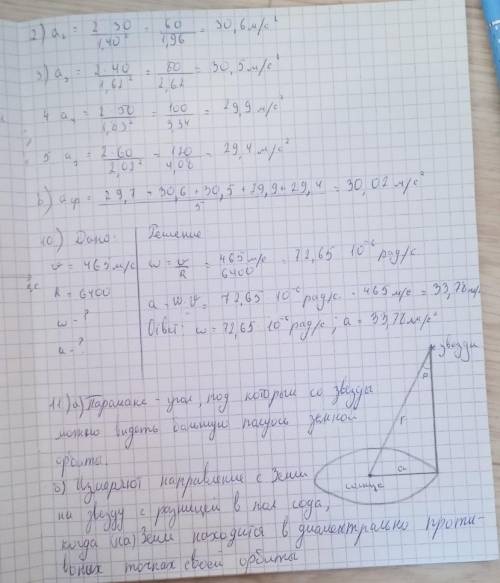 2) a₂ = 2·30/1,40² = 60/1,96 = 30,6 м/с²
3) a₃ = 2·40/1,62² = 80/2,62 = 30,5 м/с²
4 a₄ = 2·50/1,83² = 100/3,34 = 29,9 м/с²
5 a₅ = 2·60/2,02² = 120/4,08 = 29,4 м/с²
6) aср = (29,7 + 30,6 + 30,5 + 29,9 + 29,4)/5 = 30,02 м/с²
10.) Дано: Решение
v = 465 м/с ω = v/R = 465 м/с/6400 = 72,65 10⁻⁶ рад/с
R = 6400 a = ω·v = 72,65 10⁻⁶ рад/с · 465 м/с = 33,78 м/с²
ω - ? Ответ: ω = 72,65 10⁻⁶ рад/с; a = 33,78 м/с²
a - ?
звезда
p
r
a
солнце
11) а) Паралакс - угол, под которым со звезды
можно видеть большую полуось земной
орбиты.
б) Измеряют направление с Земли
на звезду с разницей в пол года,
когда (на) Земля находится в диаметрально проти-
вопих точках своей орбиты